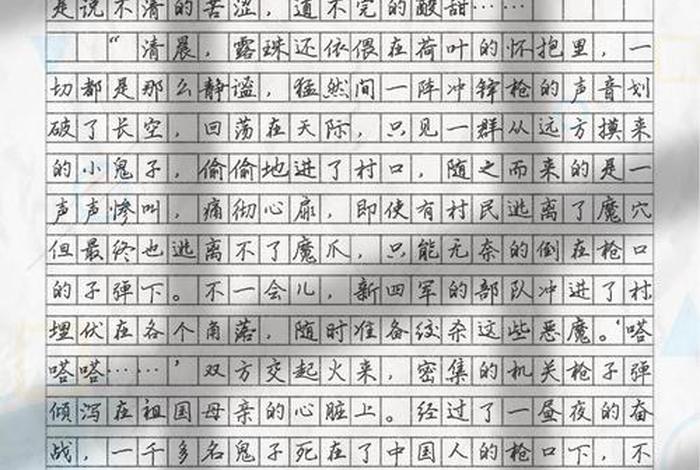 是说不清的苦涩，道不完的酸甜……
“清晨，露珠还依偎在荷叶的怀抱里，一
切都是那么静谧，猛然间一阵冲锋枪的声音划
破了长空，回荡在天际，只见一群从远方摸来
的小鬼子，偷偷地进了村口，随之而来的是一
声声惨叫，痛彻心扉，即使有村民逃离了魔穴
但最终也逃离不了魔爪，只能无奈的倒在枪口
的子弹下。不一会儿，新四军的部队冲进了村
埋伏在各个角落，随时准备绞杀这些恶魔。‘嗒
嗒嗒……’双方交起火来，密集的机关枪子弹
倾泻在祖国母亲的心脏上。经过了一昼夜的奋
战，一千多名鬼子死在了中国人的枪口下，不